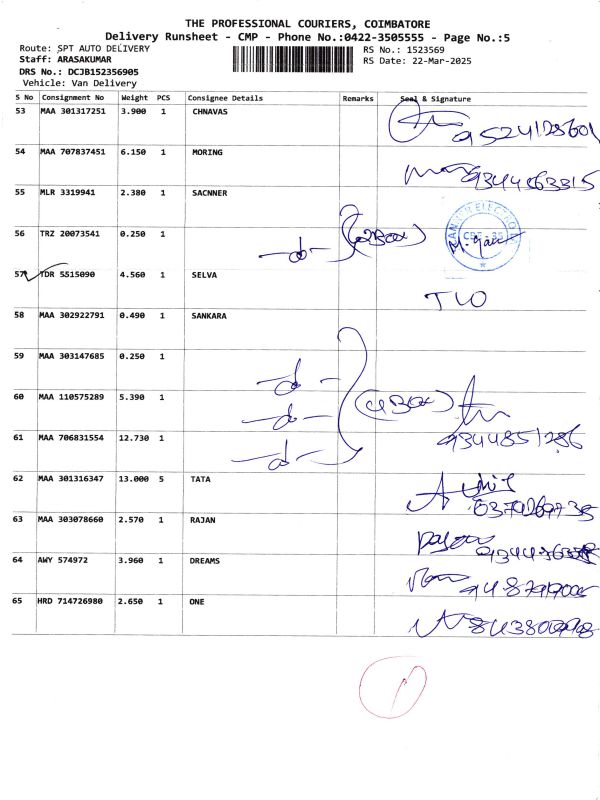 THE PROFESSIONAL COURIERS, COIMBATORE
Delivery Runsheet - CMP - Phone No.:0422-3505555 - Page No.:5
Route: SPT AUTO DELIVERY
RS No.: 1523569
Staff: ARASAKUMAR
RS Date: 22-Mar-2025
DRS No.: DCJB152356905
Vehicle: Van Delivery
S No Consignment No Weight PCS Consignee Details Remarks Seal & Signature
53 MAA 301317251 3.900 1 CHNAVAS
54 MAA 707837451 6.150 1 MORING
55 MLR 3319941 2.380 1 SACNNER
56 TRZ 20073541 0.250 1
57 TDR 5515090 4.560 1 SELVA
TWO
58 MAA 302922791 0.490 1 SANKARA
59 MAA 303147685 0.250 1
60 MAA 110575289 5.390 1
61 MAA 706831554 12.730 1 9344851286
62 MAA 301316347 13.000 5 TATA
63 MAA 303078660 2.570 1 RAJAN
64 AWY 574972 3.960 1 DREAMS
65 HRD 714726980 2.650 1 ONE